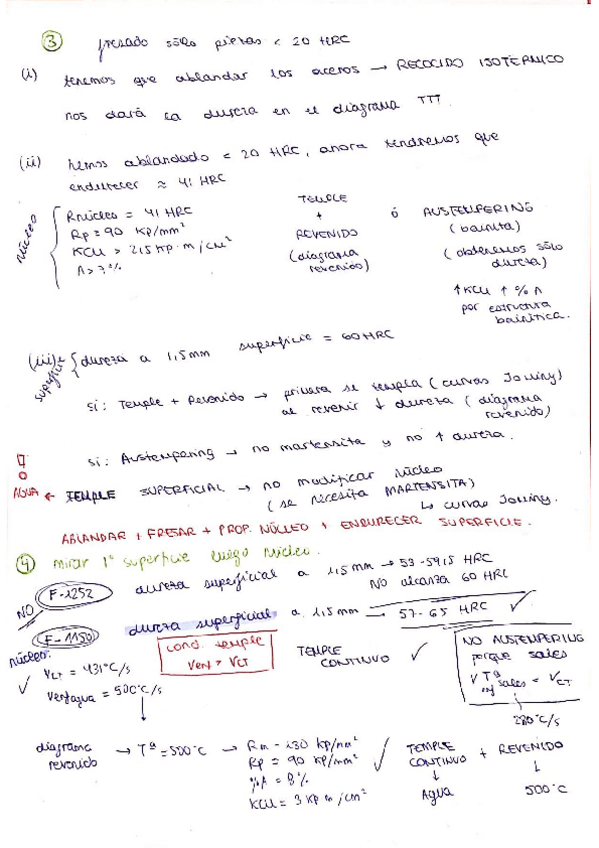 ③ fresado sólo piezas < 20 HRC
(i) tenemos que ablandar los aceros → RECOCIDO ISOTÉRMICO
nos dará la dureza en el diagrama TTT.
(ii) hemos ablandado = 20 HRC, ahora tendremos que
endurecer ≈ 41 HRC
núcleo
Rnúcleo = 41 HRC
Rp = 90 kp/mm²
KCU > 2,5 kp·m/cm²
A > 7%
TEMPLE
+
REVENIDO
(diagrama
revenido)
ó AUSTEMPERING
(bainita)
(obtenemos sólo
dureza)
↑KCU ↑%A
por estructura
bainítica.
(iii) superficie { dureza a 1,5mm superficie = 60 HRC
si: Temple + Revenido → primera se templa (curvas Jominy)
al revenir ↓ dureza (diagrama
revenido)
si: Austempering → no martensita y no ↑ dureza.
AGUA ← TEMPLE SUPERFICIAL → no modificar núcleo
(se necesita MARTENSITA)
↳ curvas Jominy.
ABLANDAR + FRESAR + PROP. NÚCLEO + ENDURECER SUPERFICIE.
④ mirar 1º superficie luego núcleo.
NO F-1252 dureza superficial a 1,5mm → 53-59,5 HRC
NO alcanza 60 HRC
F-1150 dureza superficial a 1,5mm → 57-65 HRC ✓
núcleo:
✓ VCT = 431°C/s
Venfagua = 500°C/s
cond. temple
Venf > VCT
TEMPLE
CONTINUO ✓
NO AUSTEMPERING
porque sales
V Tª
enf sales = VCT
280°C/s
diagrama
revenido → Tª = 500°C → Rm - 130 kp/mm²
Rp = 90 kp/mm²
%A = 8%
KCU = 3 kp m/cm²
✓ TEMPLE
CONTINUO + REVENIDO
↓ ↓
Agua 500°C